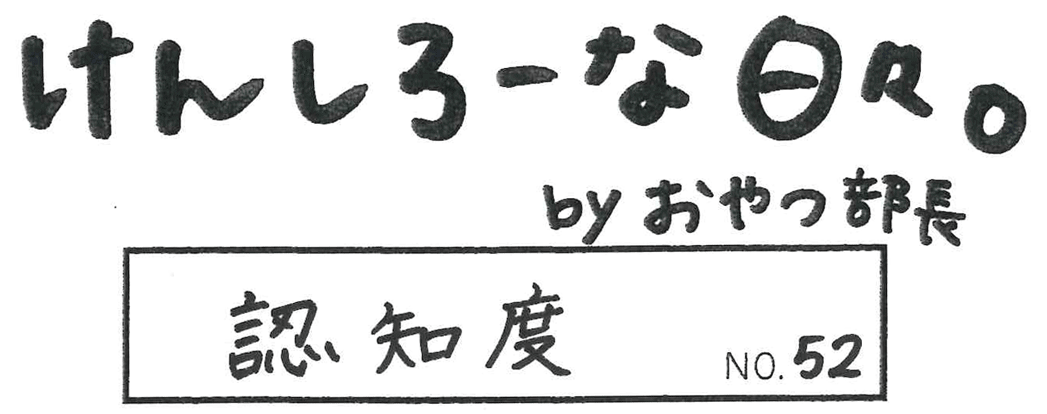 けんしろーな日々。
by おやつ部長
認知度 NO.52